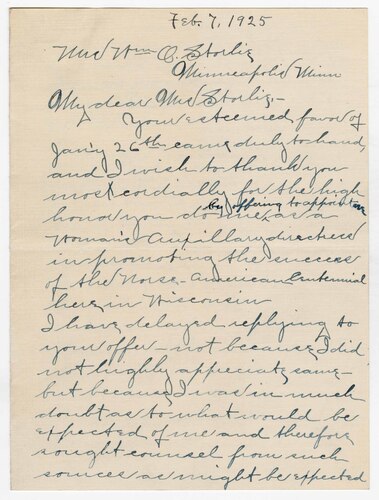 Feb. 7, 1925
Mrs Wm O. Storlie
Minneapolis Minn
My dear Mrs Storlie,-
Your esteemed favor of
Jan'y 26th came duly to hand,
and I wish to thank you
most cordially for the high
honor you do me, by offering to appoint me as a
Woman's Auxillary directress
in promoting the success
of the Norse-American Centennial
here in Wisconsin
I have delayed replying to
your offer - not because I did
not highly appreciate same -
but because I was in much
doubt as to what would be
expected of me and therefore
sought counsel from such
sources as might be expected